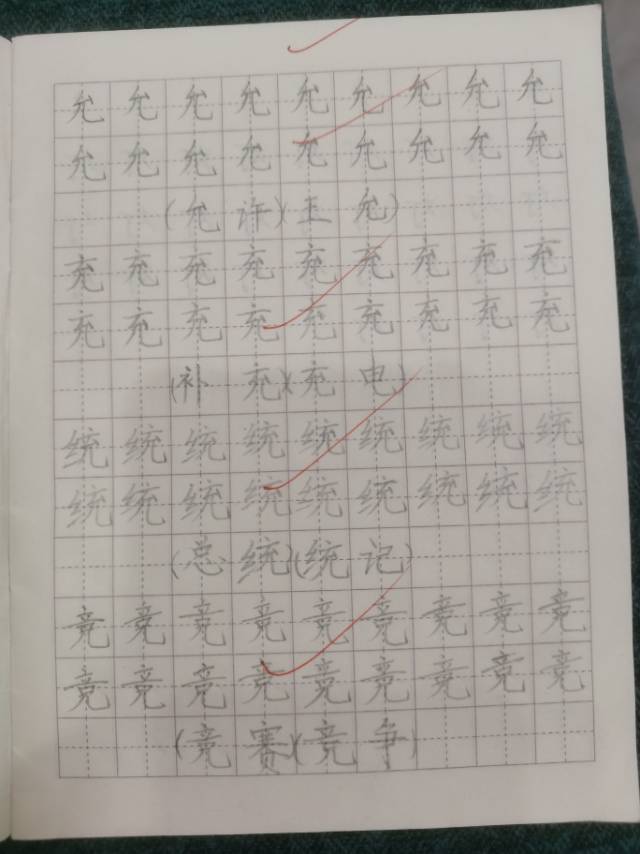 允允允允允允允允允
允允允允允允允允允
(允许)(王允)
充充充充充充充充充
充充充充充充充充充
(补充)(充电)
统统统统统统统统统
统统统统统统统统统
(总统)(统记)
竞竞竞竞竞竞竞竞竞
竞竞竞竞竞竞竞竞竞
(竞赛)(竞争)